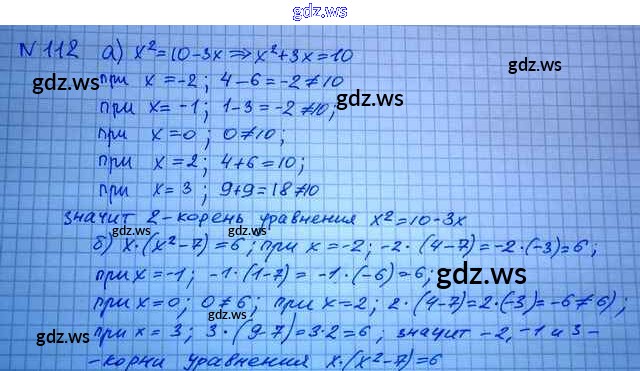 gdz.ws
N 112 а) x²=10-3x⇒x²+3x=10
gdz.ws
при x=-2; 4-6=-2≠10
gdz.ws
при x=-1; 1-3=-2≠10;
при x=0; 0≠10;
при x=2; 4+6=10;
при x=3; 9+9=18≠10
gdz.ws
значит 2-корень уравнения x²=10-3x
gdz.ws
б) x·(x²-7)=6; при x=-2; -2·(4-7)=-2·(-3)=6;
при x=-1; -1·(1-7)= -1·(-6)=6;
gdz.ws
при x=0; 0≠6; при x=2; 2·(4-7)=2·(-3)=-6≠6);
gdz.ws
при x=3; 3·(9-7)=3·2=6; значит -2,-1 и 3-
-корни уравнения x·(x²-7)=6
gdz.ws